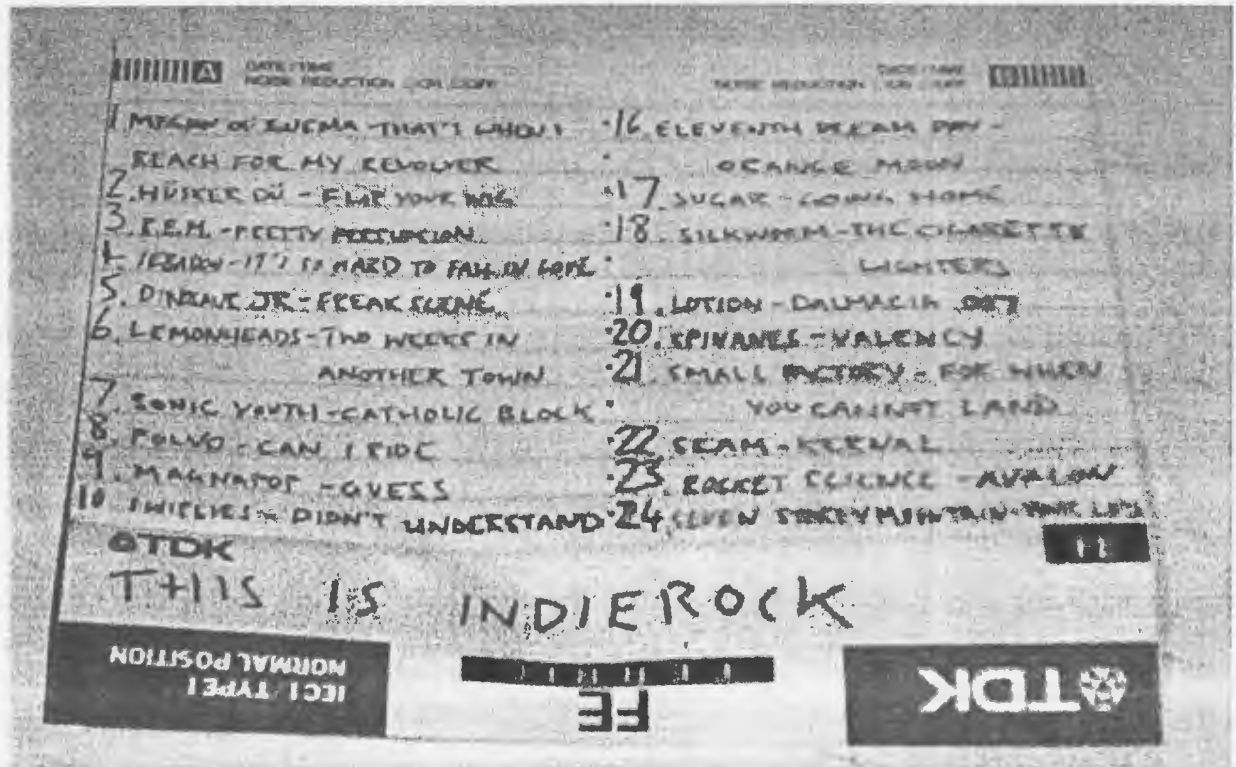 A DATE/TIME
NOISE REDUCTION
1. MISSION OF BURMA - THAT'S WHEN I
REACH FOR MY REVOLVER
2. HÜSKER DÜ - FLIP YOUR WIG
3. R.E.M. - PRETTY PERSUASION
4. SEBADOH - IT'S SO HARD TO FALL IN LOVE
5. DINOSAUR JR - FREAK SCENE
6. LEMONHEADS - TWO WEEKS IN
ANOTHER TOWN
7. SONIC YOUTH - CATHOLIC BLOCK
8. POLVO - CAN I RIDE
9. MAGNAPOP - GUESS
10. SWIRLIES - DIDN'T UNDERSTAND
DATE/TIME B
NOISE REDUCTION
16. ELEVENTH DREAM DAY -
ORANGE MOON
17. SUGAR - GOING HOME
18. SILKWORM - THE CIGARETTE
LIGHTERS
19. LOTION - DALMACIA 007
20. SPINANES - VALENCY
21. SMALL FACTORY - FOR WHEN
YOU CANNOT LAND
22. SEAM - KERNAL
23. ROCKET SCIENCE - AVALON
24. SEVEN STOREY MOUNTAIN -
TDK
THIS IS INDIEROCK
IEC I / TYPE I
NORMAL POSITION
FE
TDK